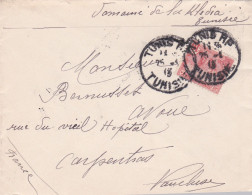 Domaine de la
Tunisie
TUNIS R.P.
25 -1
TUNISIE
TUNIS R.P.
25 -1
TUNISIE
Monsieur
Bernusset
Avoué
rue du vieil Hopital
Carpentras
Vaucluse
France